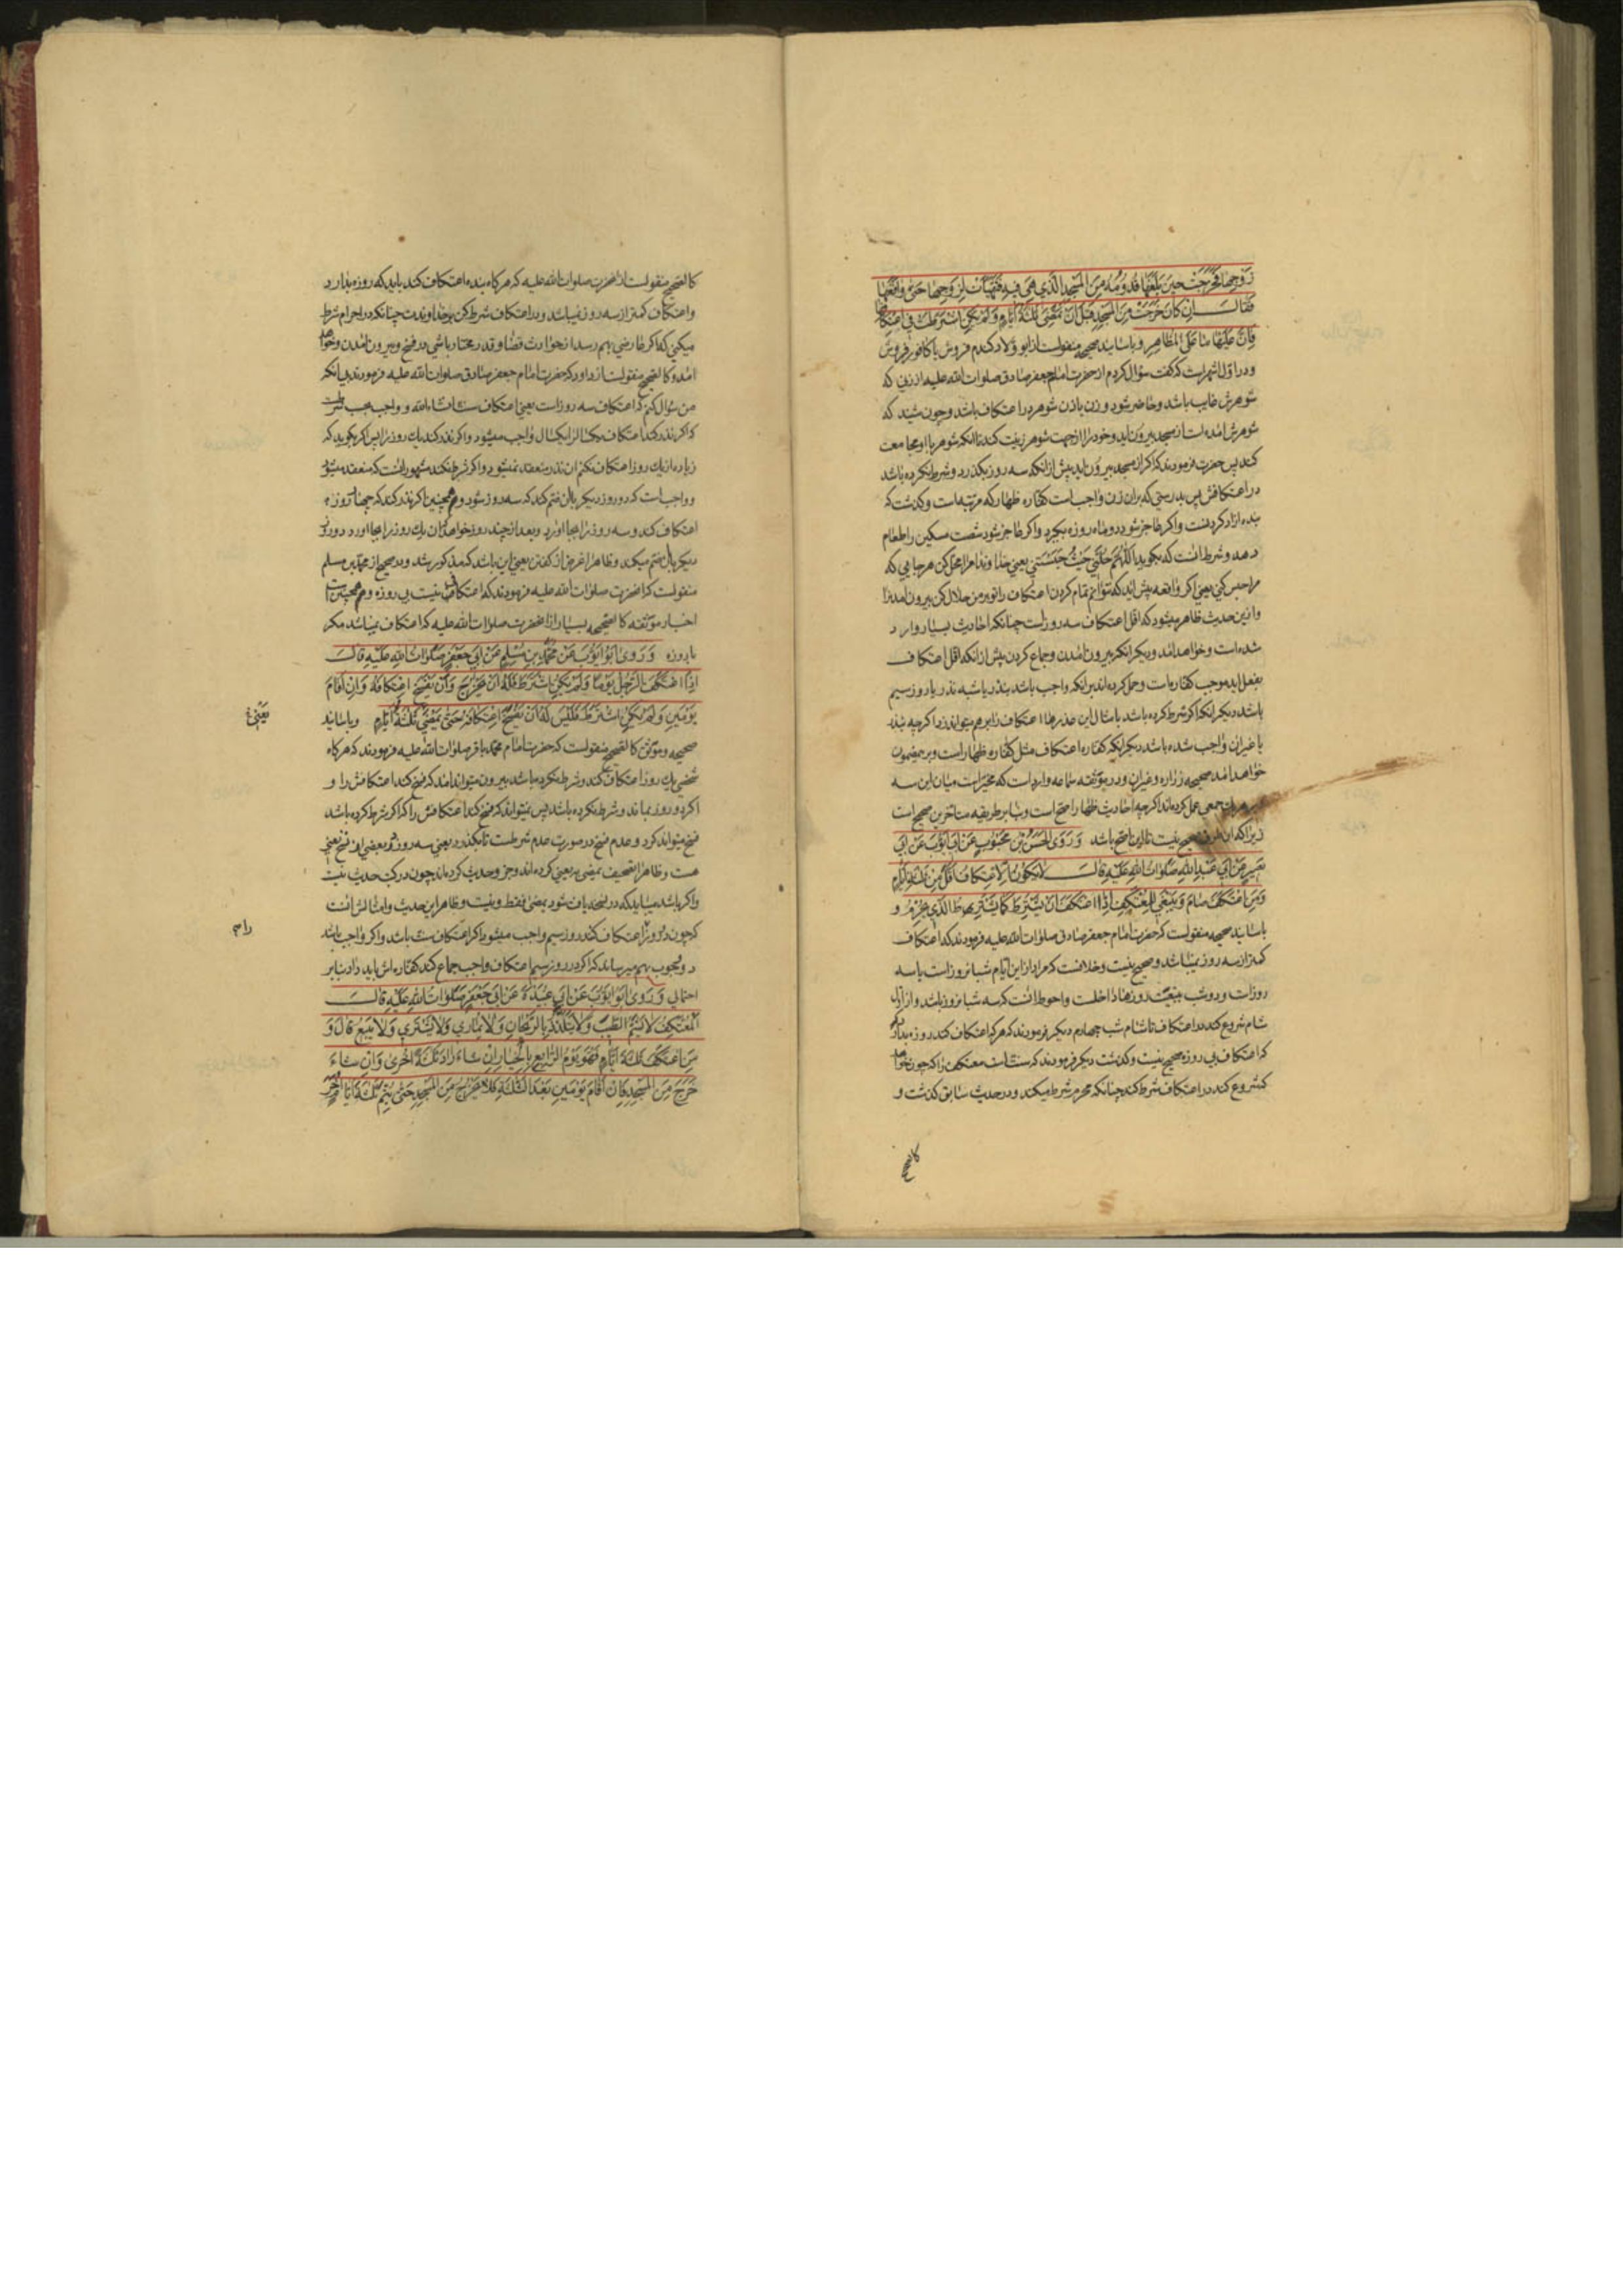 زَوْجِهَا فَخَرَجَتْ حِينَ بَلَغَهَا قُدُومُهُ مِنَ الْمَسْجِدِ الَّذِي هِيَ فِيهِ فَتَهَيَّأَتْ لِزَوْجِهَا حَتَّى وَاقَعَهَا
فَقَالَ اِنْ كَانَ خَرَجَتْ مِنَ الْمَسْجِدِ قَبْلَ اَنْ تَمْضِيَ ثَلٰثَةُ اَيَّامٍ وَلَمْ تَكُنِ اشْتَرَطَتْ فِي اعْتِكَافِهَا
فَاِنَّ عَلَيْهَا مَا عَلَى الْمُظَاهِرِ وباسانید صحیحه منقولست از ابو ولاد کندم فروش یا کافور فروش
ودر اول اشهر است که گفت سؤال کردم از حضرت امام جعفر صادق صلوات الله علیه از زنی که
شوهرش غایب باشد وحاضر شود و زن باذن شوهر در اعتکاف باشد وچون شنید که
شوهرش امده است از مسجد بیرون اید وخود را از جهت شوهر زینت کند تا انکه شوهر با او مجامعت
کند پس حضرت فرمودند که اکر از مسجد بیرون اید پیش از انکه سه روز بکذرد و شرط نکرده باشد
در اعتکافش پس بدرستی که بران زن واجب است کفاره ظهار که مرتبه است وکذشت که
بنده ازاد کردنست واکر عاجز شود دو ماه روزه بگیرد واکر عاجز شود شصت مسکین را طعام
دهد و شرط انست که بکوید اللّٰهُمَّ حُلَّنِي حَيْثُ حَبَسْتَنِي یعنی خداوندا مرا محل کن هر جایی که
مرا حبس کنی یعنی اکر واقعه پیش اید که نتوانم تمام کردن اعتکاف را تو بر من حلال کن بیرون امدنرا
وازین حدیث ظاهر میشود که اقل اعتکاف سه روز است چنانکه احادیث بسیار وارد
شده است وخواهد امد ودیکر انکه بیرون امدن وجماع کردن پیش از انکه اقل اعتکاف
بفعل اید موجب کفاره است وحمل کرده اند برانکه واجب باشد بنذر یا شبه نذر یا روز سیم
باشد دیکر انکه اکر شرط کرده باشد بامثال این عذرها اعتکاف را بر هم میتواند زد اکرچه بنذر
یا غیر ان واجب شده باشد دیکر انکه کفاره اعتکاف مثل کفاره ظهار است وبر این مضمون
خواهد امد صحیحه زراره وغیر ان ودر موثقه سماعه وارد است که مخیر است میان این سه
جمعی عمل کرده اند اکرچه احادیث ظهار اصح است وبنا بر طریقه متاخرین صحیح است
زیرا که ان صحیح نیست تا این اصح باشد وَرَوَى الْحَسَنُ بْنُ مَحْبُوبٍ عَنْ اَبِي اَيُّوبَ عَنْ اَبِي
بَصِيرٍ عَنْ اَبِي عَبْدِ اللّٰهِ صَلَوَاتُ اللّٰهِ عَلَيْهِ قَالَ لَا يَكُونُ الِاعْتِكَافُ اَقَلَّ مِنْ ثَلٰثَةِ اَيَّامٍ
وَمَنِ اعْتَكَفَ صَامَ وَيَنْبَغِي لِلْمُعْتَكِفِ اِذَا اعْتَكَفَ اَنْ يَشْتَرِطَ كَمَا يَشْتَرِطُ الَّذِي يُحْرِمُ و
باسانید صحیحه منقولست که حضرت امام جعفر صادق صلوات الله علیه فرمودند که اعتکاف
کمتر از سه روز نمیباشد وصحیح نیست وخلافست که مراد از این ایام شبانروز است یا سه
روز است ودو شب بتبعیت روزها داخلست واحوط انست که سه شبانروز باشد واز اول
شام شروع کند در اعتکاف تا شام شب چهارم دیکر فرمودند که هر که اعتکاف کند روزه بدارد
که اعتکاف بی روزه صحیح نیست وکذشت دیکر فرمودند که سنت است معتکف را که چون خواهد
که شروع کند در اعتکاف شرط کند چنانکه محرم شرط میکند ودر حدیث سابق کذشت و
کالصحیح
کالصحیح منقولست از انحضرت صلوات الله علیه که هر کاه بنده اعتکاف کند باید که روزه بدارد
واعتکاف کمتر از سه روز نمیباشد ودر اعتکاف شرط کن بر خداوندت چنانکه در احرام شرط
میکنی که اکر عارضی بهم رسد از حوادث قضا وقدر مختار باشی در فسخ وبیرون امدن وخواهد
امد وکالصحیح منقولست از داود که حضرت امام جعفر صادق صلوات الله علیه فرمودند بی انکه
من سؤال کنم که اعتکاف سه روز است یعنی اعتکاف سنت انشاءالله و واجب بحسب شرطست
که اکر نذر کند اعتکاف یکسال را یکسال واجب میشود واکر نذر کند یک روز را پس اکر بکوید که
زیاده از یک روز اعتکاف نکنم ان نذر منعقد نمیشود واکر شرط نکند مشهور انست که منعقد میشود
و واجب است که دو روز دیکر بان ضم کند که سه روز شود وهمچنین اکر نذر کند که چهار روزه
اعتکاف کند وسه روز را بجا اورد وبعد از چند روز خواهد که ان یک روز را بجا اورد دو روز
دیکر بان ضم میکند وظاهرا غرض از کفتن یعنی این باشد که مذکور شد ودر صحیح از محمد بن مسلم
منقولست که انحضرت صلوات الله علیه فرمودند که اعتکاف نیست بی روزه وهمچنین است
اخبار موثقه کالصحیحه بسیار از انحضرت صلوات الله علیه که اعتکاف نمیباشد مکر
با روزه وَرَوَى اَبُو اَيُّوبَ عَنْ مُحَمَّدِ بْنِ مُسْلِمٍ عَنْ اَبِي جَعْفَرٍ صَلَوَاتُ اللّٰهِ عَلَيْهِ قَالَ
اِذَا اعْتَكَفَ الرَّجُلُ يَوْمًا وَلَمْ يَكُنِ اشْتَرَطَ فَلَهُ اَنْ يَخْرُجَ وَاَنْ يَفْسَخَ اعْتِكَافَهُ وَاِنْ اَقَامَ
يَوْمَيْنِ وَلَمْ يَكُنِ اشْتَرَطَ فَلَيْسَ لَهُ اَنْ يَفْسَخَ اعْتِكَافَهُ حَتَّى يَمْضِيَ ثَلٰثَةُ اَيَّامٍ وباسانید
یَعْنِیْ
صحیحه وموثق کالصحیح منقولست که حضرت امام محمد باقر صلوات الله علیه فرمودند که هر کاه
شخصی یک روز اعتکاف کند وشرط نکرده باشد بیرون میتواند امد که فسخ کند اعتکافش را و
اکر دو روز بماند وشرط نکرده باشد پس نمیتواند که فسخ کند اعتکافش را که اکر شرط کرده باشد
فسخ میتواند کرد وعدم فسخ در صورت عدم شرطست تا بکذرد یعنی سه روز ودر بعضی از نسخ یعنی
هست وظاهرا تصحیف بمضی بیعنی کرده اند وجزو حدیث کرده اند چون در کتب حدیث نیست
واکر باشد میباید که در نسخه یافت شود یمضی فقط ونیست وظاهر این حدیث وامثالش انست
که چون دو روز را اعتکاف کند روز سیم واجب میشود اکر اعتکاف سنت باشد واکر واجب باشد
رام
وجوب بهم میرساند که اکر در روز سیم اعتکاف واجب جماع کند کفاره اش باید داد بنا بر
احتمالی وَرَوَى اَبُو اَيُّوبَ عَنْ اَبِي عُبَيْدَةَ عَنْ اَبِي جَعْفَرٍ صَلَوَاتُ اللّٰهِ عَلَيْهِ قَالَ
اَلْمُعْتَكِفُ لَا يَشَمُّ الطِّيبَ وَلَا يَتَلَذَّذُ بِالرَّيْحَانِ وَلَا يُمَارِي وَلَا يَشْتَرِي وَلَا يَبِيعُ قَالَ وَ
مَنِ اعْتَكَفَ ثَلٰثَةَ اَيَّامٍ فَهُوَ يَوْمَ الرَّابِعِ بِالْخِيَارِ اِنْ شَاءَ زَادَ ثَلٰثَةً اُخْرَى وَاِنْ شَاءَ
خَرَجَ مِنَ الْمَسْجِدِ فَاِنْ اَقَامَ يَوْمَيْنِ بَعْدَ الثَّلٰثَةِ فَلَا يَخْرُجْ مِنَ الْمَسْجِدِ حَتَّى يُتِمَّ ثَلٰثَةَ اَيَّامٍ اُخَرَ